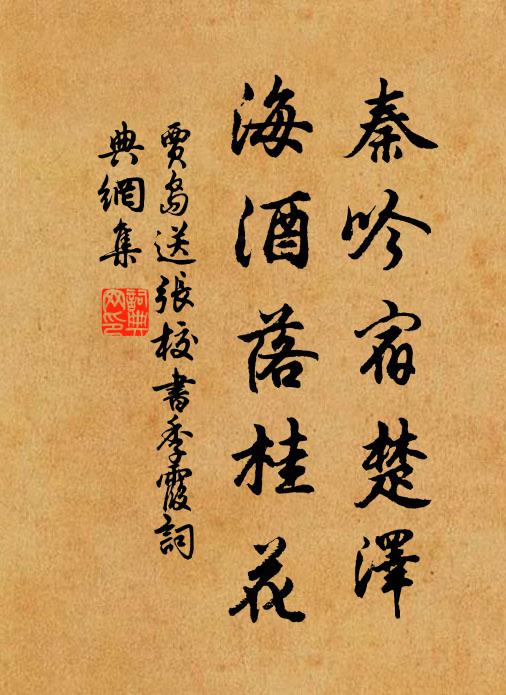 秦吟宿楚澤
海酒落桂花
賈島送張校書季霞詞
典網集
詞典
网印